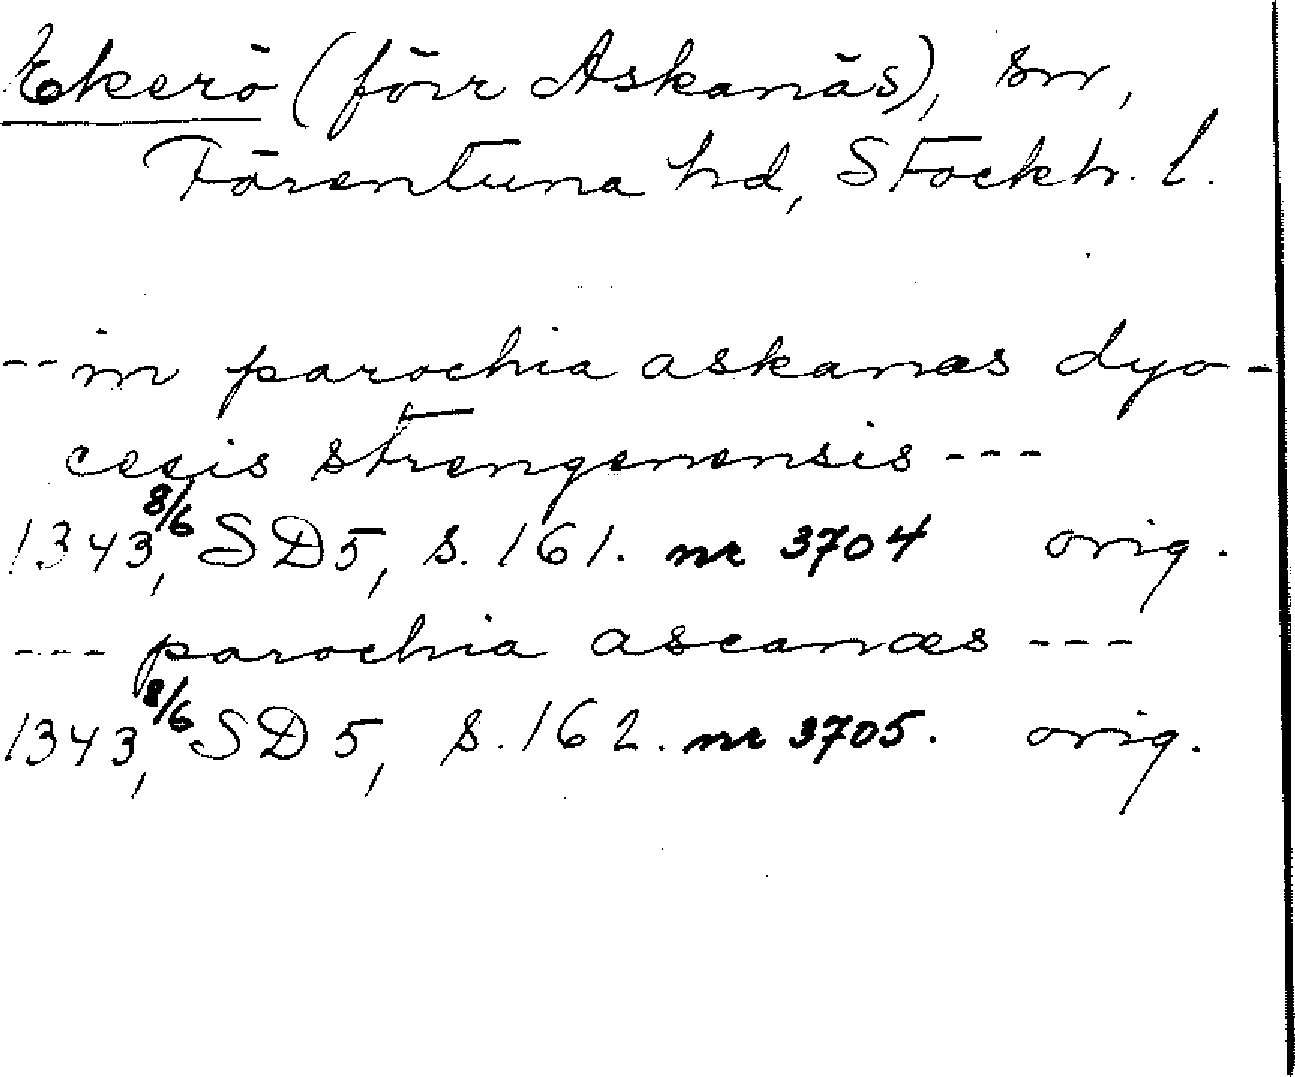 Ekerö (förr Askanäs), sn,
Färentuna hd, Stockh. l.
-- in parochia askanæs dyo-
cesis strengenensis ---
1343, 8/6 SD 5, s. 161. nr 3704 orig.
--- parochia ascanæs ---
1343, 8/6 SD 5, s. 162. nr 3705. orig.